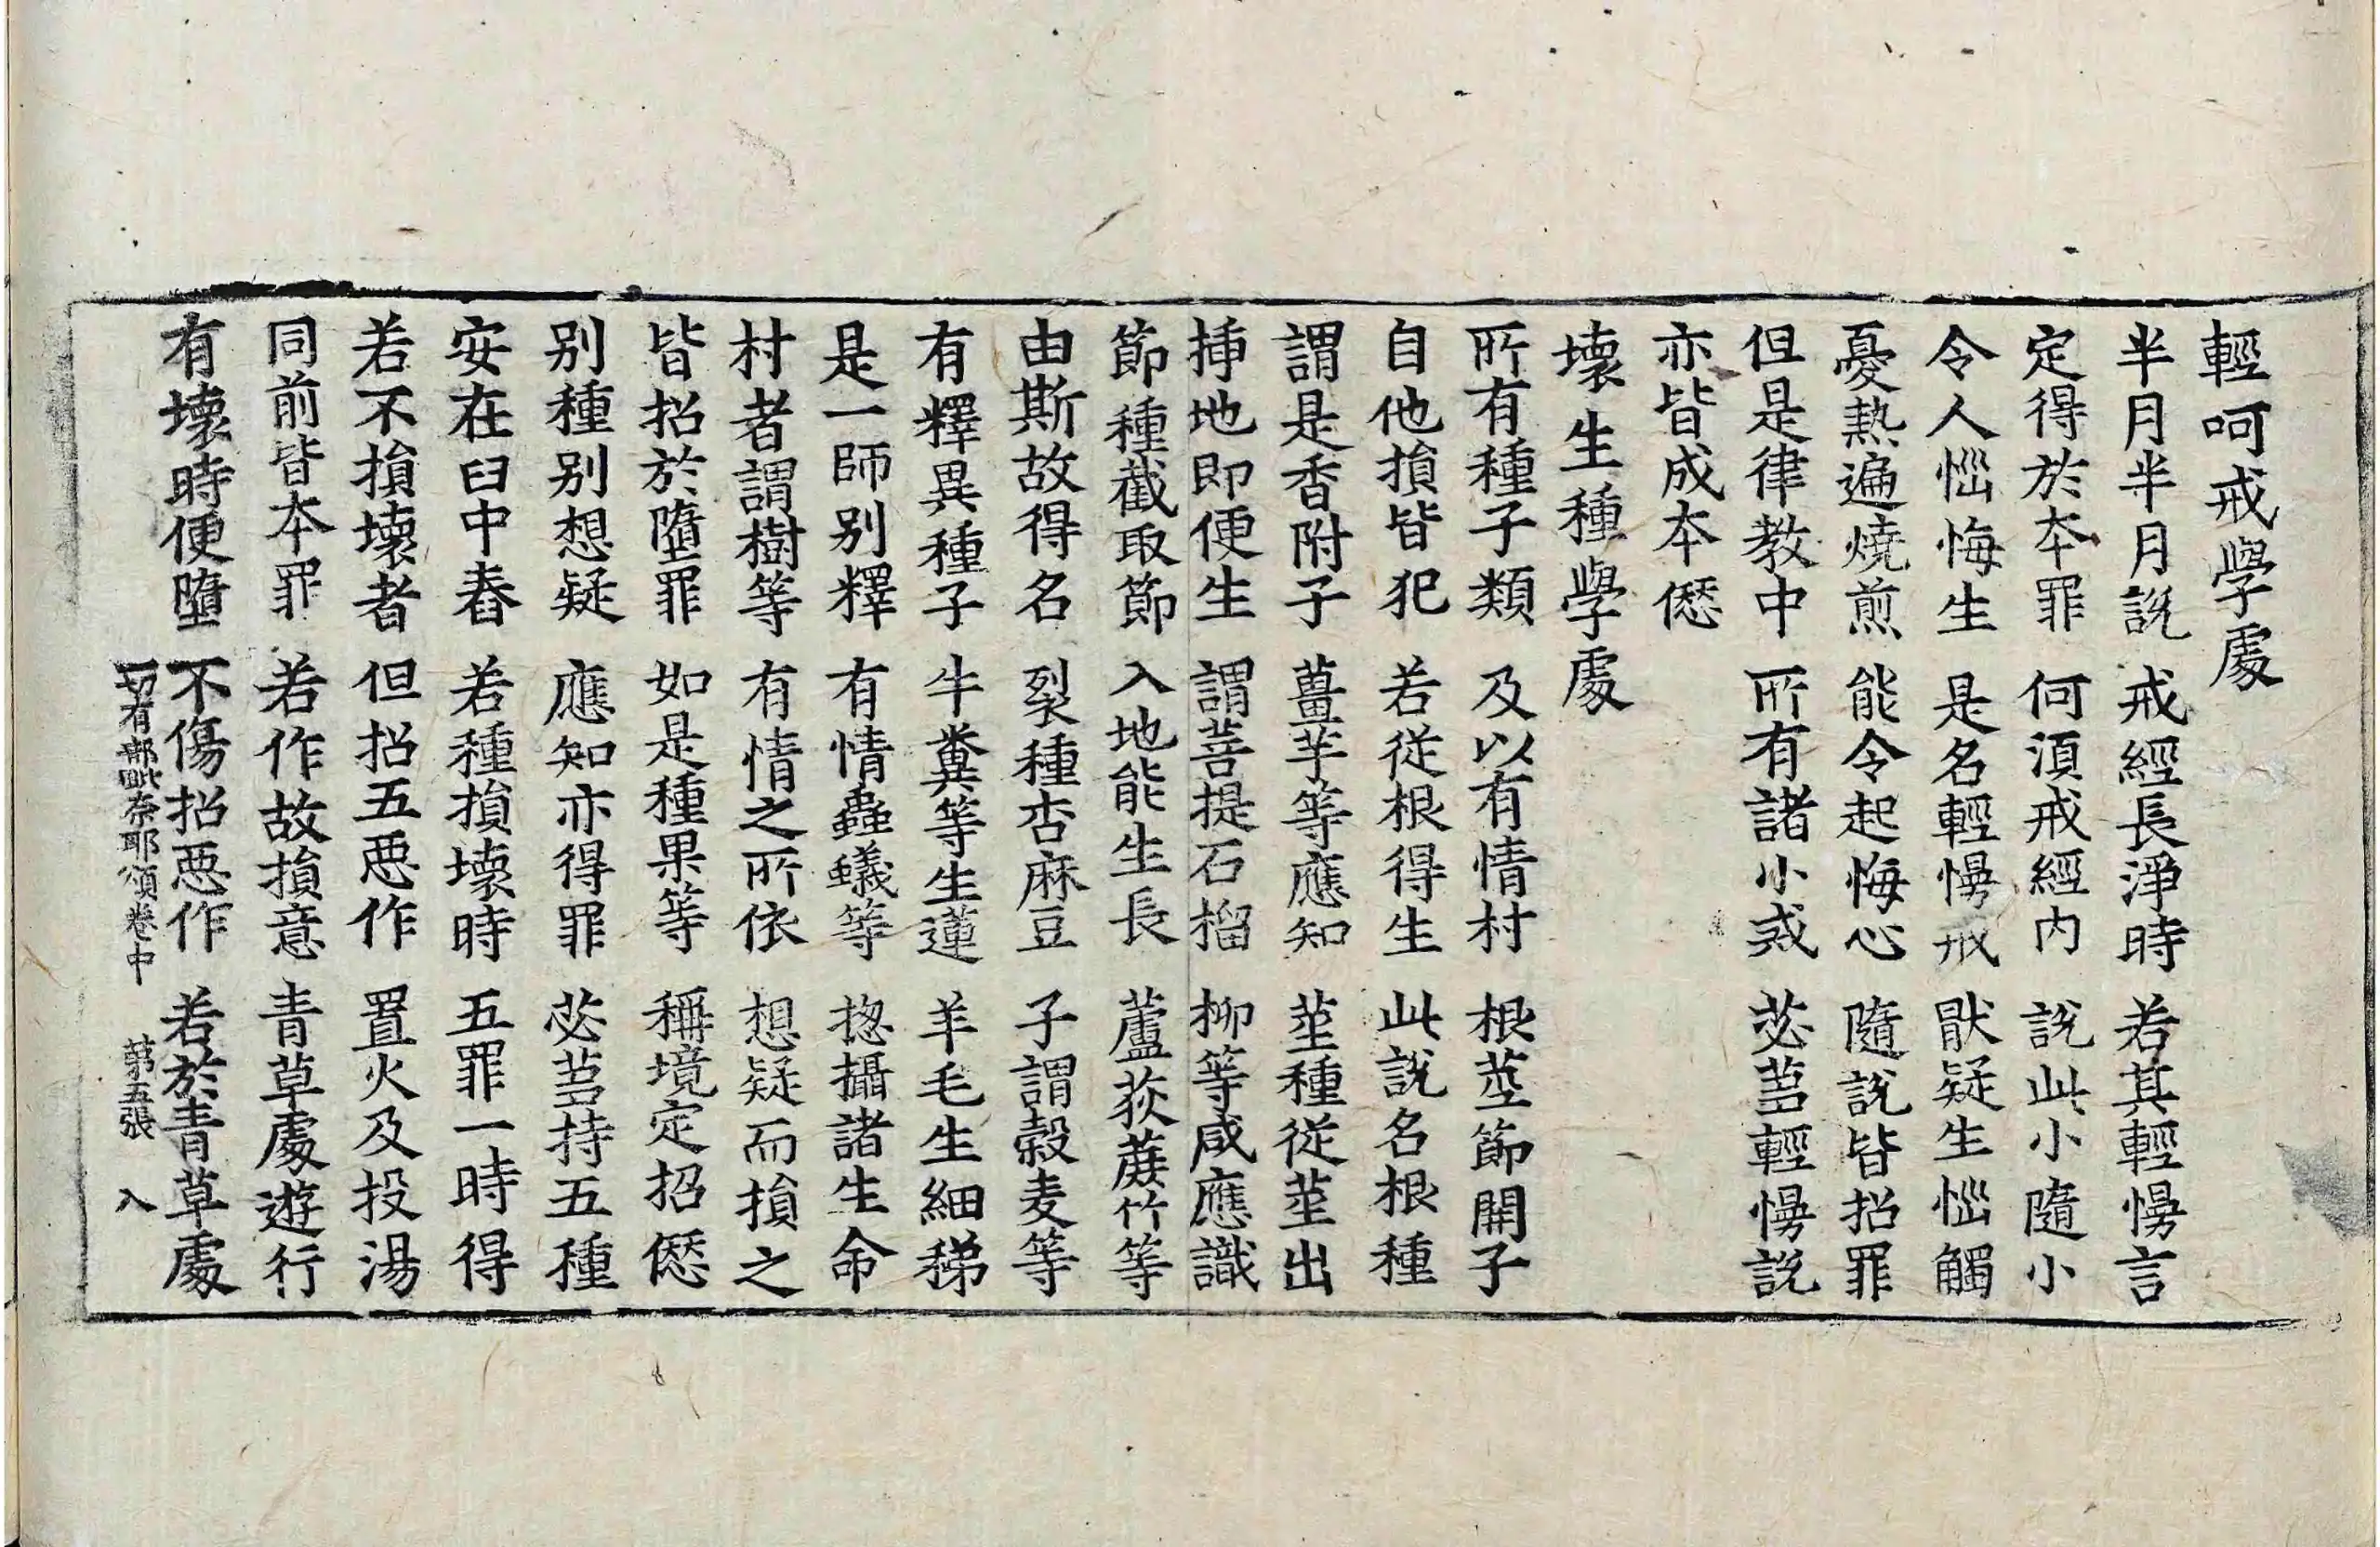 輕呵戒學處
半月半月說 戒經長淨時 若其輕慢言
定得於本罪 何湏戒經內 說此小隨小
令人惱悔生 是名輕慢戒 猒疑生惱觸
憂熱遍燒煎 能令起悔心 隨說皆招罪
但是律教中 所有諸小戒 苾芻輕慢說
亦皆成本愆
壞生種學處
所有種子類 及以有情村 根莖節開子
自他損皆犯 若從根得生 此說名根種
謂是香附子 薑芋等應知 莖種從莖出
揷地即便生 謂菩提石榴 柳等咸應識
節種截取節 入地能生長 蘆荻蔗竹等
由斯故得名 裂種杏麻豆 子謂穀麦等
有釋異種子 牛糞等生蓮 羊毛生細稊
是一師别釋 有情蟲蟻等 揔攝諸生命
村者謂樹等 有情之所依 想疑而損之
皆招於墮罪 如是種果等 稱境定招愆
别種别想疑 應知亦得罪 苾芻持五種
安在臼中舂 若種損壞時 五罪一時得
若不損壞者 但招五惡作 置火及投湯
同前皆本罪 若作故損意 青草處遊行
有壞時便墮 不傷招惡作 若於青草處
一切有部毗奈耶頌卷中 第五張 入